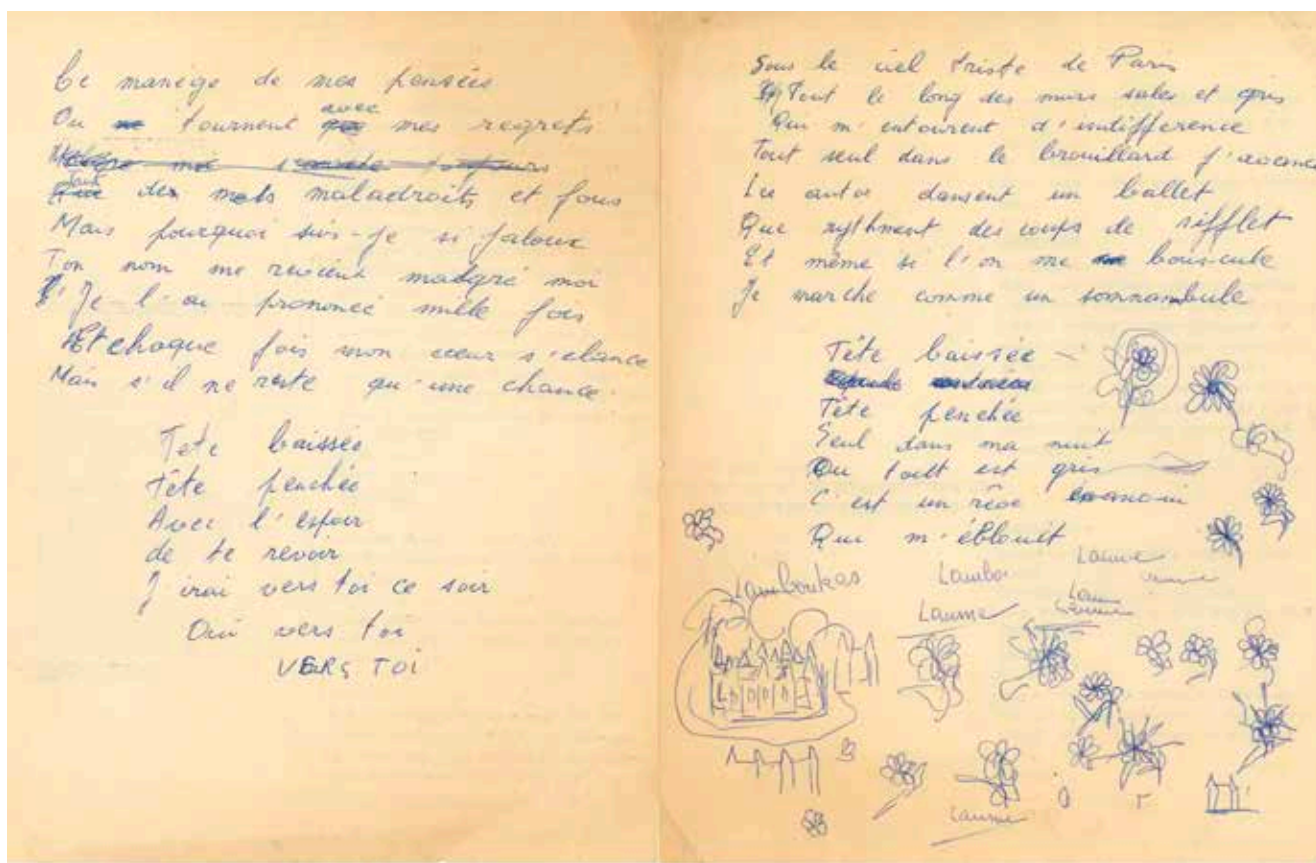 Ce manège de mes pensées
Ou tournent avec mes regrets
des mots maladroits et fous
Mais pourquoi suis-je si jaloux
Ton nom me revient malgré moi
Je l'ai prononcé mille fois
Et chaque fois mon cœur s'élance
Mais s'il ne reste qu'une chance.
Tete baissée
Tête penchée
Avec l'espoir
de te revoir
J irai vers toi ce soir
Oui vers toi
VERS TOI
Sous le ciel triste de Paris
Tout le long des murs sales et gris
Qui m'entourent d'indifférence
Tout seul dans le brouillard j'avance
Les autos dansent un ballet
Que rythment des coups de sifflet
Et même si l'on me bouscule
Je marche comme un somnambule
Tête baissée
Tête penchée
Seul dans ma nuit
Ou tout est gris
C'est un rêve
Qui m'éblouit
Lamboukas
Lambo
Laume
Laume
Laume